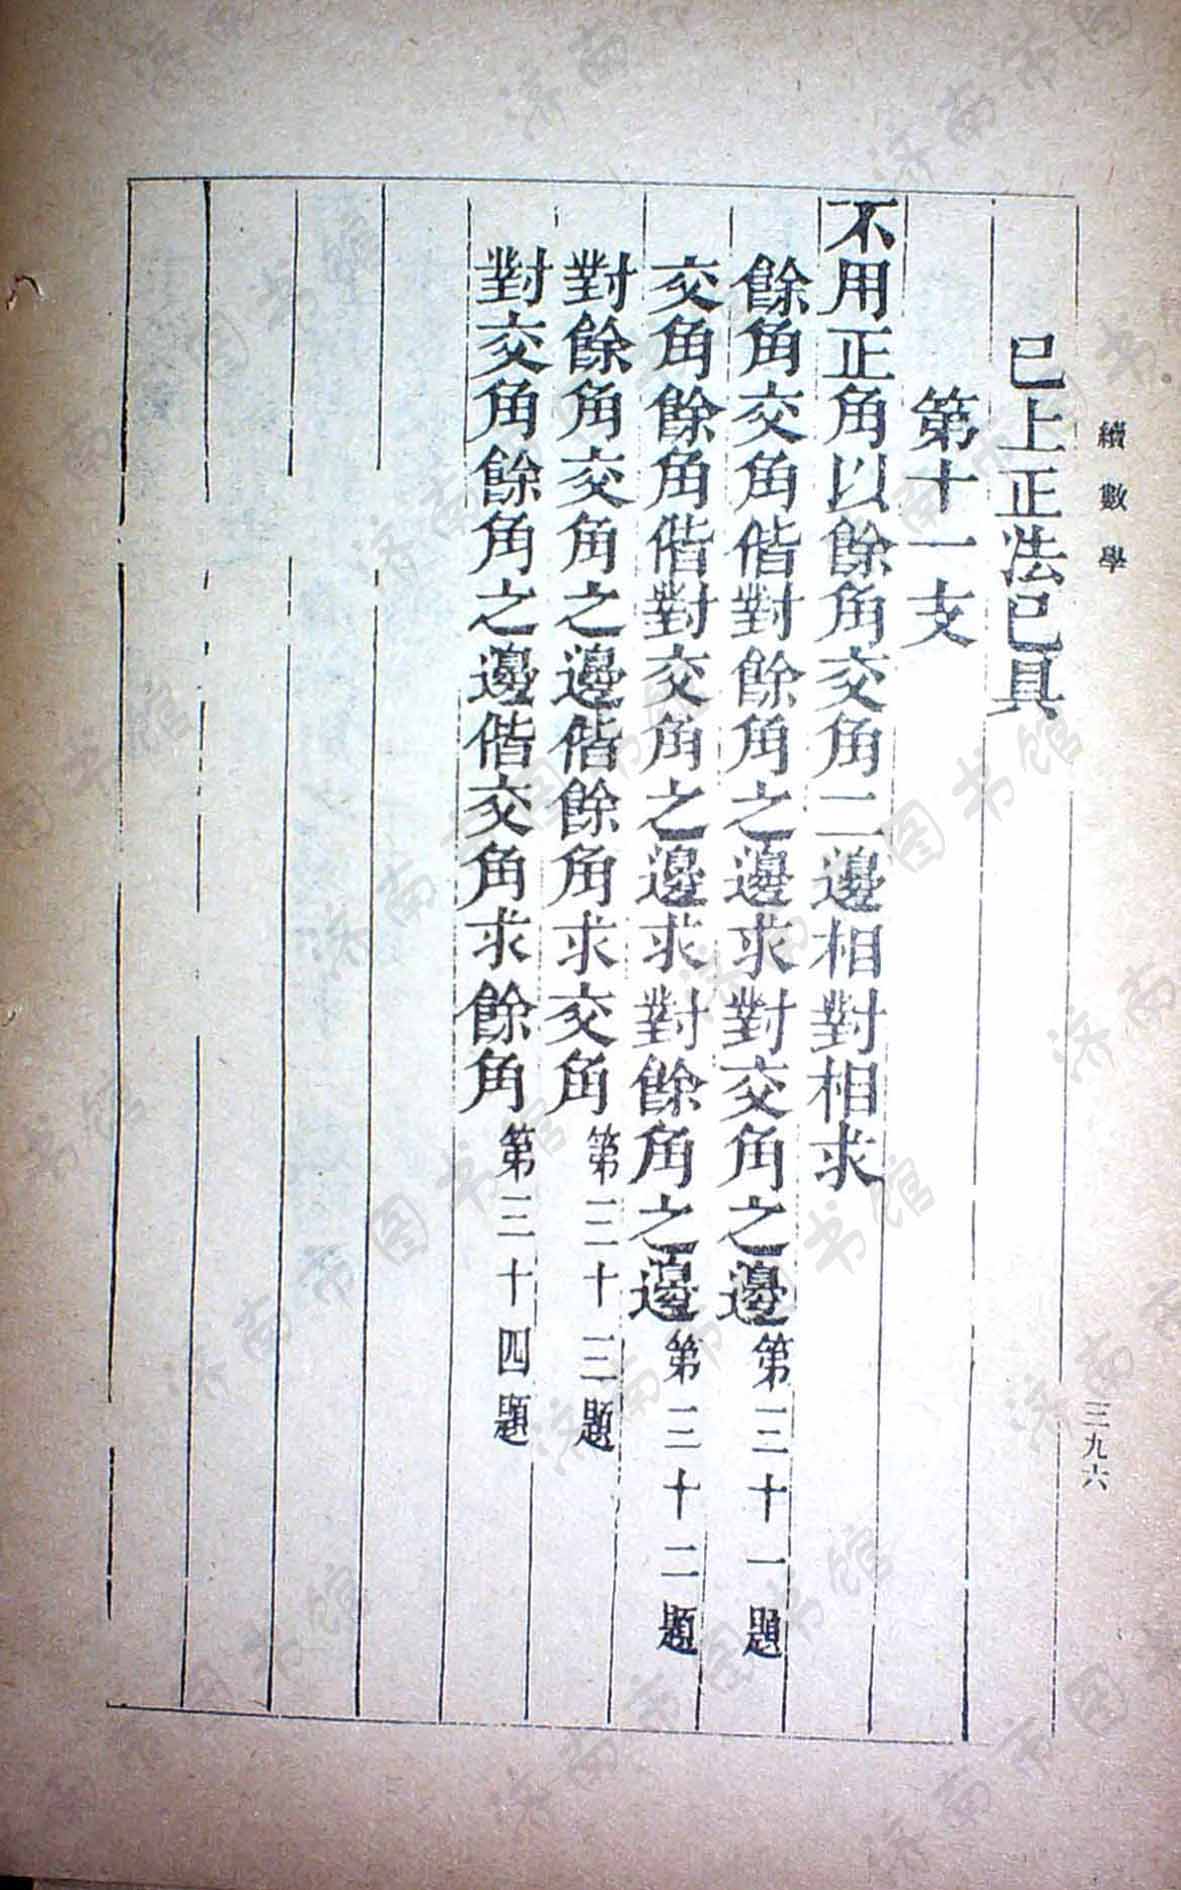 續數學
三九六
已上正法已具
第十一支
不用正角以餘角交角二邊相對相求
餘角交角偕對餘角之邊求對交角之邊第三十一題
交角餘角偕對交角之邊求對餘角之邊第三十二題
對餘角交角之邊偕餘角求交角第三十三題
對交角餘角之邊偕交角求餘角第三十四題
济南市图书馆